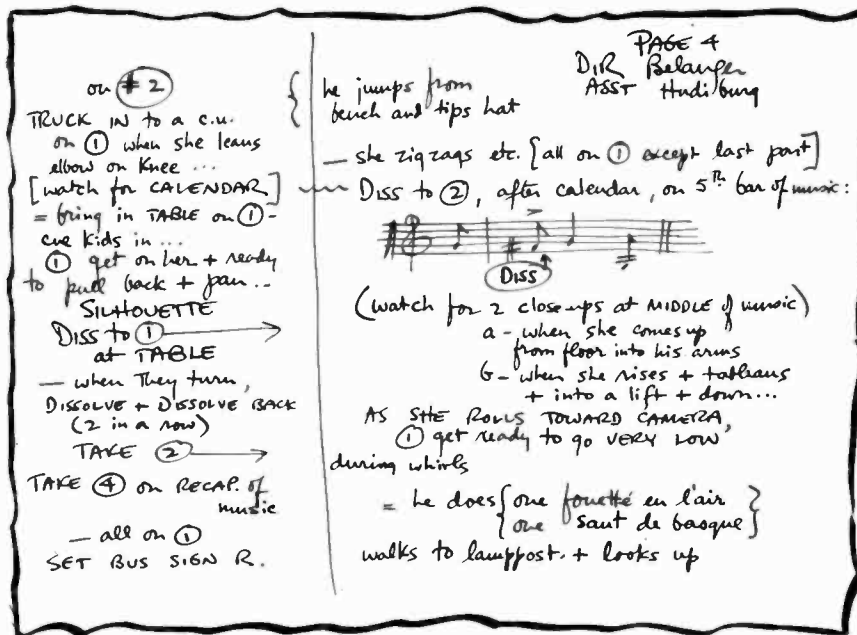 PAGE 4
DIR Belanger
ASST Hudiburg
on # 2
TRUCK IN to a c.u.
on 1 when she leans
elbow on Knee ...
[watch for CALENDAR]
= bring in TABLE on 1 -
cue kids in ...
1 get on her + ready
to pull back + pan ...
SILHOUETTE
DISS to 1
at TABLE
— when they turn,
DISSOLVE + DISSOLVE BACK
(2 in a row)
TAKE 2
TAKE 4 on RECAP. of
music
— all on 1
SET BUS SIGN R.
{ he jumps from
bench and tips hat
— she zigzags etc. [all on 1 except last part]
DISS to 2, after calendar, on 5th bar of music:
DISS
(watch for 2 close-ups at MIDDLE of music)
a - when she comes up
from floor into his arms
b - when she rises +
+ into a lift + down...
AS SHE ROLLS TOWARD CAMERA,
1 get ready to go VERY LOW
during whirls
= he does { one fouetté en l'air
one saut de basque }
walks to lamppost. + looks up